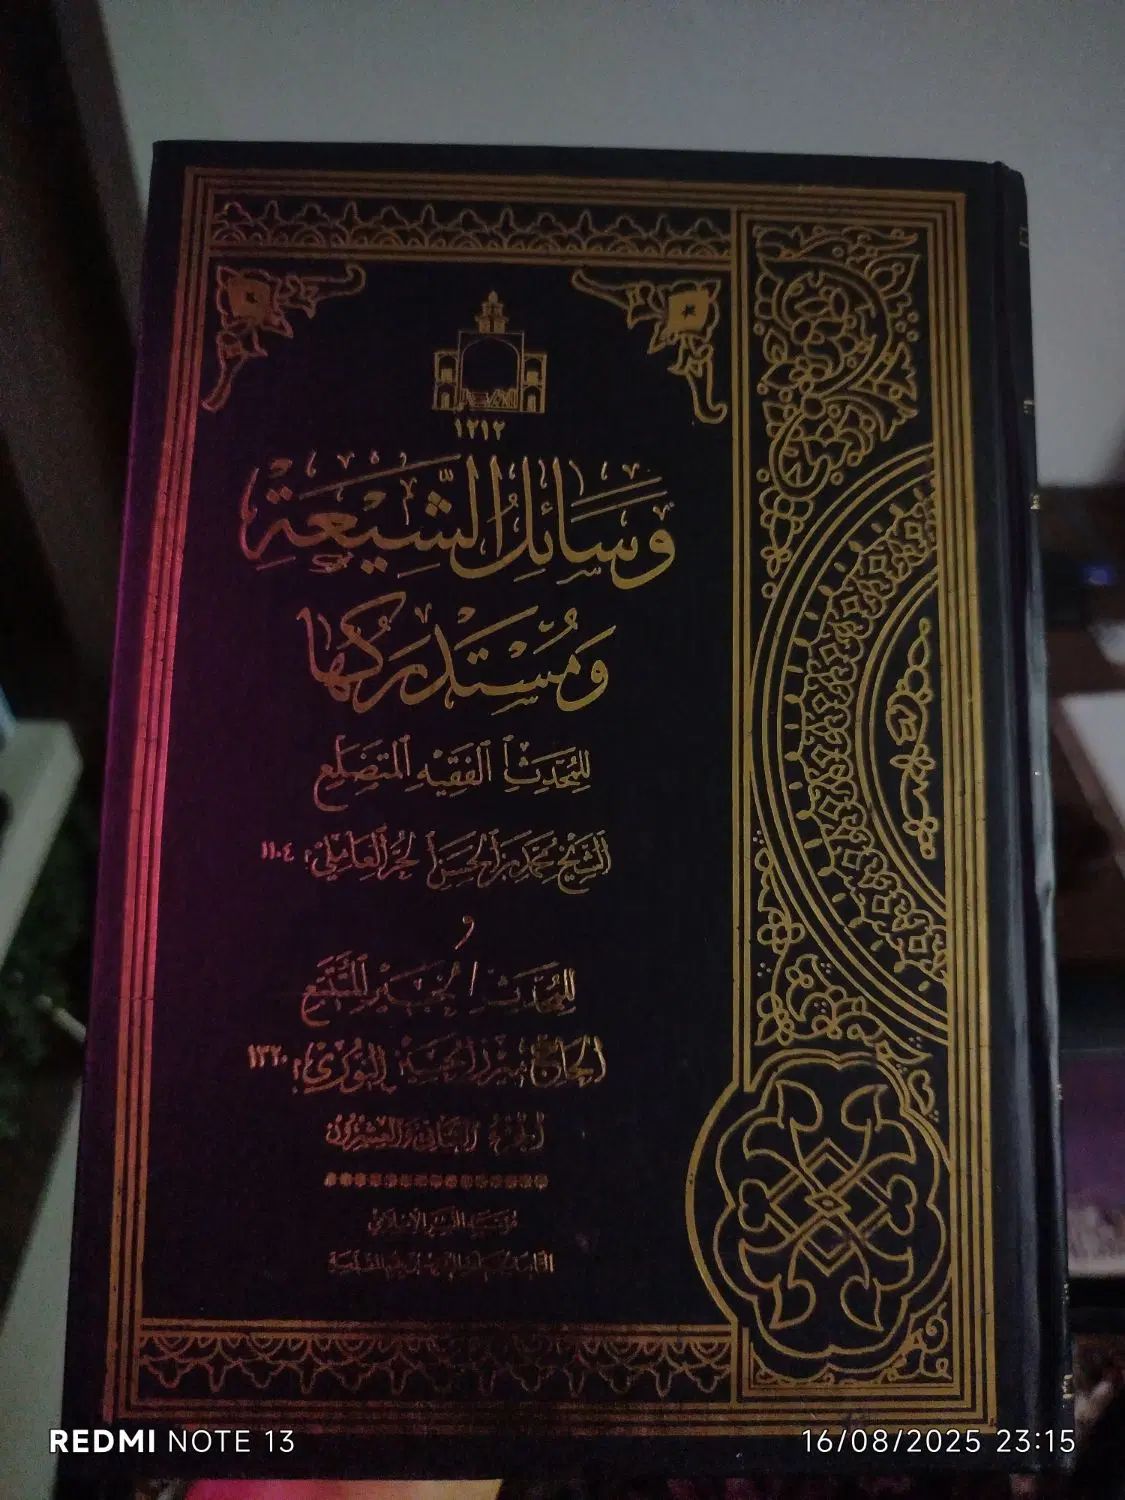 ١٢١٢
وَسَائِلُ الشِّيعَةِ
وَمُسْتَدْرَكُهَا
للمُحَدِّثِ الفَقِيهِ المُتَضَلِّعِ
الشَّيْخِ مُحَمَّدِ بْنِ الحَسَنِ الحُرِّ العَامِلِيِّ م ١١٠٤
و
للمُحَدِّثِ الخَبِيرِ المُتَتَبِّعِ
الحَاجِّ مِيرْزَا حُسَيْن النُّورِيِّ م ١٣٢٠
الجزء الثاني والعشرون
مؤسسة النشر الإسلامي
التابعة لجماعة المدرسين بقم المشرفة
REDMI NOTE 13
16/08/2025 23:15